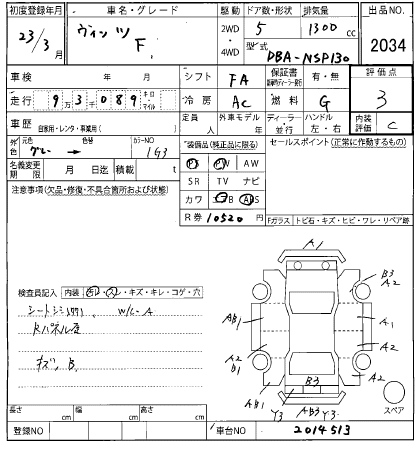 初度登録年月 車名・グレード 駆動 ドア数・形状 排気量 出品NO.
23/3月 ヴィッツ F 2WD・4WD 5 1300 cc 2034
型式 DBA-NSP130
車検 年 月 シフト FA 保証書 有・無 評価点 3
走行 9万3千089 キロ・マイル 冷房 AC 燃料 G
車歴 自家用・レンタ・事業用( ) 定員 人 外車モデル 年 ディーラー・並行 ハンドル 左・右 内装評価 C
外色 元色 グレー → 色替 カラーNO 1G3
装備品(純正品に限る) セールスポイント(正常に動作するもの)
PS PW AW
名義変更期限 月 日迄 積載 t SR TV ナビ
注意事項(欠品・修復・不具合箇所および状態) カワ エアB ABS
R券 10520 円 Fガラス トビ石・キズ・ヒビ・ワレ・リペア跡
A1
B3
A2
検査員記入 内装 汚レ・スレ・キズ・キレ・コゲ・穴
シートシミ W/C-A
AB1 A1
キズ、B
A2
B1
A2
A2
B3
AB1 Y3 AB3 Y3
スペア
長さ cm 幅 cm 高さ cm
登録NO 車台NO 2014513